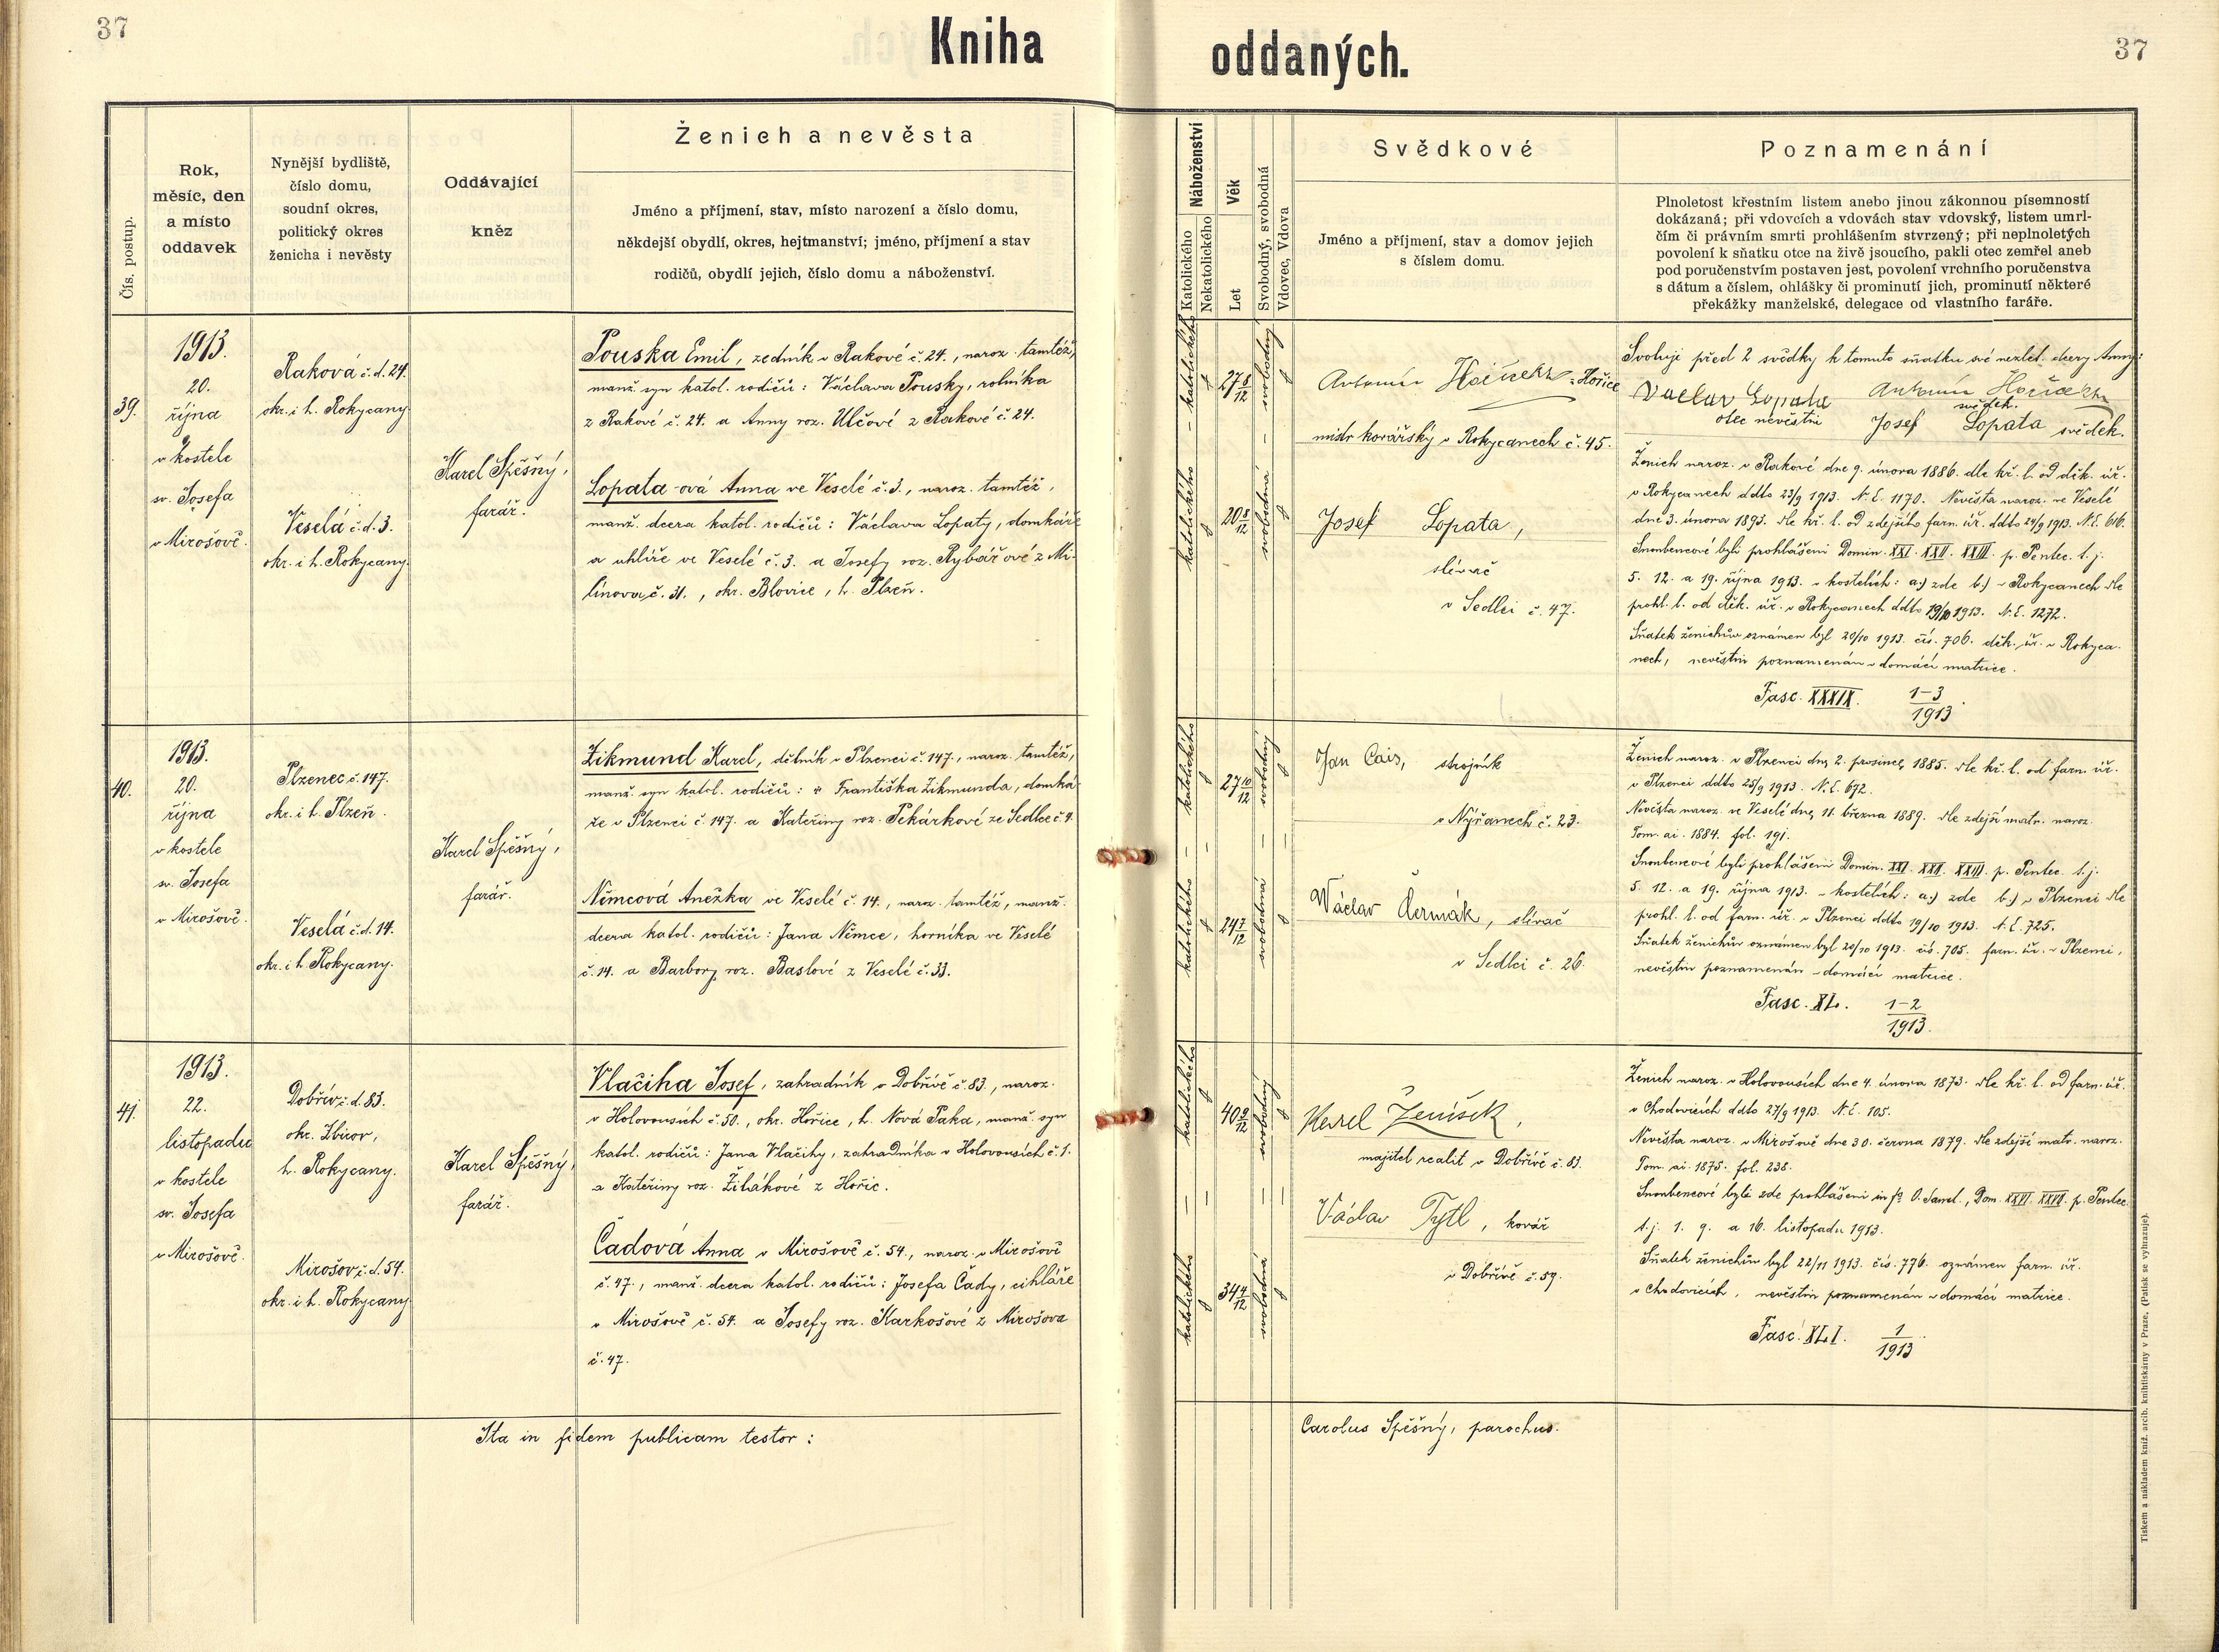 37
Kniha oddaných.
37
Čís. postup.
Rok,
měsíc, den
a místo
oddavek
Nynější bydliště,
číslo domu,
soudní okres,
politický okres
ženicha i nevěsty
Oddávající
kněz
Ženich a nevěsta
Jméno a příjmení, stav, místo narození a číslo domu,
někdejší obydlí, okres, hejtmanství; jméno, příjmení a stav
rodičů, obydlí jejich, číslo domu a náboženství.
Náboženství
Katolického
Nekatolického
Věk
Let
Svobodný, svobodná
Vdovec, Vdova
Svědkové
Jméno a příjmení, stav a domov jejich
s číslem domu.
Poznamenání
Plnoletost křestním listem anebo jinou zákonnou písemností
dokázaná; při vdovcích a vdovách stav vdovský, listem umrl-
čím či právním smrti prohlášením stvrzený; při neplnoletých
povolení k sňatku otce na živě jsoucího, pakli otec zemřel aneb
pod poručenstvím postaven jest, povolení vrchního poručenstva
s dátum a číslem, ohlášky či prominutí jich, prominutí některé
překážky manželské, delegace od vlastního faráře.
39.
1913.
20.
října
v kostele
sv. Josefa
v Mirošově.
Raková č.d. 24.
okr. i h. Rokycany.
Veselá č.d. 3.
okr. i h. Rokycany.
Karel Spěšný,
farář.
Pouska Emil, zedník v Rakové č. 24., naroz. tamtéž,
manž. syn katol. rodičů: Václava Pousky, rolníka
z Rakové č. 24. a Anny roz. Ulčové z Rakové č. 24.
Lopata-ová Anna ve Veselé č. 3., naroz. tamtéž,
manž. dcera katol. rodičů: Václava Lopaty, domkáře
a uhlíře ve Veselé č. 3. a Josefy roz. Rybářové z Mi-
línova č. 31., okr. Blovice, h. Plzeň.
katolického
27 8/12
svobodný
katolického
20 8/12
svobodná
Antonín Hořice
mistr kovářský v Rokycanech č. 45.
Josef Lopata,
slévač
v Sedlci č. 47.
Svoluji před 2 svědky k tomuto sňatku své nezlet. dcery Anny:
Vaclav Lopata Antonín
svědek.
otec nevěstin Josef Lopata svědek.
Ženich naroz. v Rakové dne 9. února 1886. dle kř. l. od děk. úř.
v Rokycanech ddto 23/9 1913. N.E. 1170. Nevěsta naroz. ve Veselé
dne 3. února 1893. dle kř. l. od zdejšího farn. úř. ddto 24/9 1913. N.E. 616.
Snoubencové byli prohlášeni Domin. XXI. XXII. XXIII. p. Pentec. t. j.
5. 12. a 19. října 1913. v kostelích: a.) zde b.) v Rokycanech dle
prohl. l. od děk. úř. v Rokycanech ddto 19/10 1913. N.E. 1272.
Sňatek ženichův oznámen byl 20/10 1913. čís. 706. děk. úř. v Rokyca-
nech, nevěstin poznamenán v domácí matrice.
Fasc. XXXIX. 1-3/1913.
40.
1913.
20.
října
v kostele
sv. Josefa
v Mirošově.
Plzenec č. 147.
okr. i h. Plzeň.
Veselá č.d. 14.
okr. i h. Rokycany.
Karel Spěšný,
farář.
Zikmund Karel, dělník v Plzenci č. 147., naroz. tamtéž,
manž. syn katol. rodičů: Františka Zikmunda, domká-
ře v Plzenci č. 147. a Kateřiny roz. Pekárkové ze Sedlce č. 4.
Němcová Anežka ve Veselé č. 14., naroz. tamtéž, manž.
dcera katol. rodičů: Jana Němce, horníka ve Veselé
č. 14. a Barbory roz. Baslové z Veselé č. 33.
katolického
27 10/12
svobodný
katolického
24 7/12
svobodná
Jan Cais, strojník
v Nýřanech č. 23.
Wáclav Čermák, slévač
v Sedlci č. 26.
Ženich naroz. v Plzenci dne 2. prosince 1885. dle kř. l. od farn. úř.
v Plzenci ddto 25/9 1913. N.E. 672.
Nevěsta naroz. ve Veselé dne 11. března 1889. dle zdejší matr. naroz.
Tom. ai. 1884. fol. 191.
Snoubencové byli prohlášeni Domin. XXI. XXII. XXIII. p. Pentec. t. j.
5. 12. a 19. října 1913. v kostelích: a.) zde b.) v Plzenci dle
prohl. l. od farn. úř. v Plzenci ddto 19/10 1913. N.E. 725.
Sňatek ženichův oznámen byl 20/10 1913. čís. 705. farn. úř. v Plzenci,
nevěstin poznamenán v domácí matrice.
Fasc. XL. 1-2/1913.
41.
1913.
22.
listopadu
v kostele
sv. Josefa
v Mirošově.
Dobřív č.d. 83.
okr. Zbirov,
h. Rokycany.
Mirošov č.d. 54.
okr. i h. Rokycany.
Karel Spěšný,
farář.
Vlačiha Josef, zahradník v Dobřívě č. 83., naroz.
v Holovousích č. 50., okr. Hořice, h. Nová Paka, manž. syn
katol. rodičů: Jana Vlačihy, zahradníka v Holovousích č. 1.
a Kateřiny roz. Žihákové z Hořic.
Čadová Anna v Mirošově č. 54., naroz. v Mirošově
č. 47., manž. dcera katol. rodičů: Josefa Čady, cihláře
v Mirošově č. 54. a Josefy roz. Karkošové z Mirošova
č. 47.
katolického
40 9/12
svobodný
katolického
34 4/12
svobodná
Karel Ženíšek,
majitel realit v Dobřívě č. 83.
Václav Tytl, kovář
v Dobřívě č. 59.
Ženich naroz. v Holovousích dne 4. února 1873. dle kř. l. od farn. úř.
v Chodovicích ddto 27/9 1913. N.E. 105.
Nevěsta naroz. v Mirošově dne 30. června 1879. dle zdejší matr. naroz.
Tom. ai. 1875. fol. 238.
Snoubencové byli zde prohlášeni in fo O. Sanct., Dom. XXVI. XXVII. p. Pentec.
t. j. 1. 9. a 16. listopadu 1913.
Sňatek ženichův byl 22/11 1913. čís. 776. oznámen farn. úř.
v Chodovicích, nevěstin poznamenán v domácí matrice.
Fasc. XLI. 1/1913.
Ita in fidem publicam testor: Carolus Spěšný, parochus.
Tiskem a nákladem kníž. arcib. knihtiskárny v Praze. (Patisk se vyhrazuje).